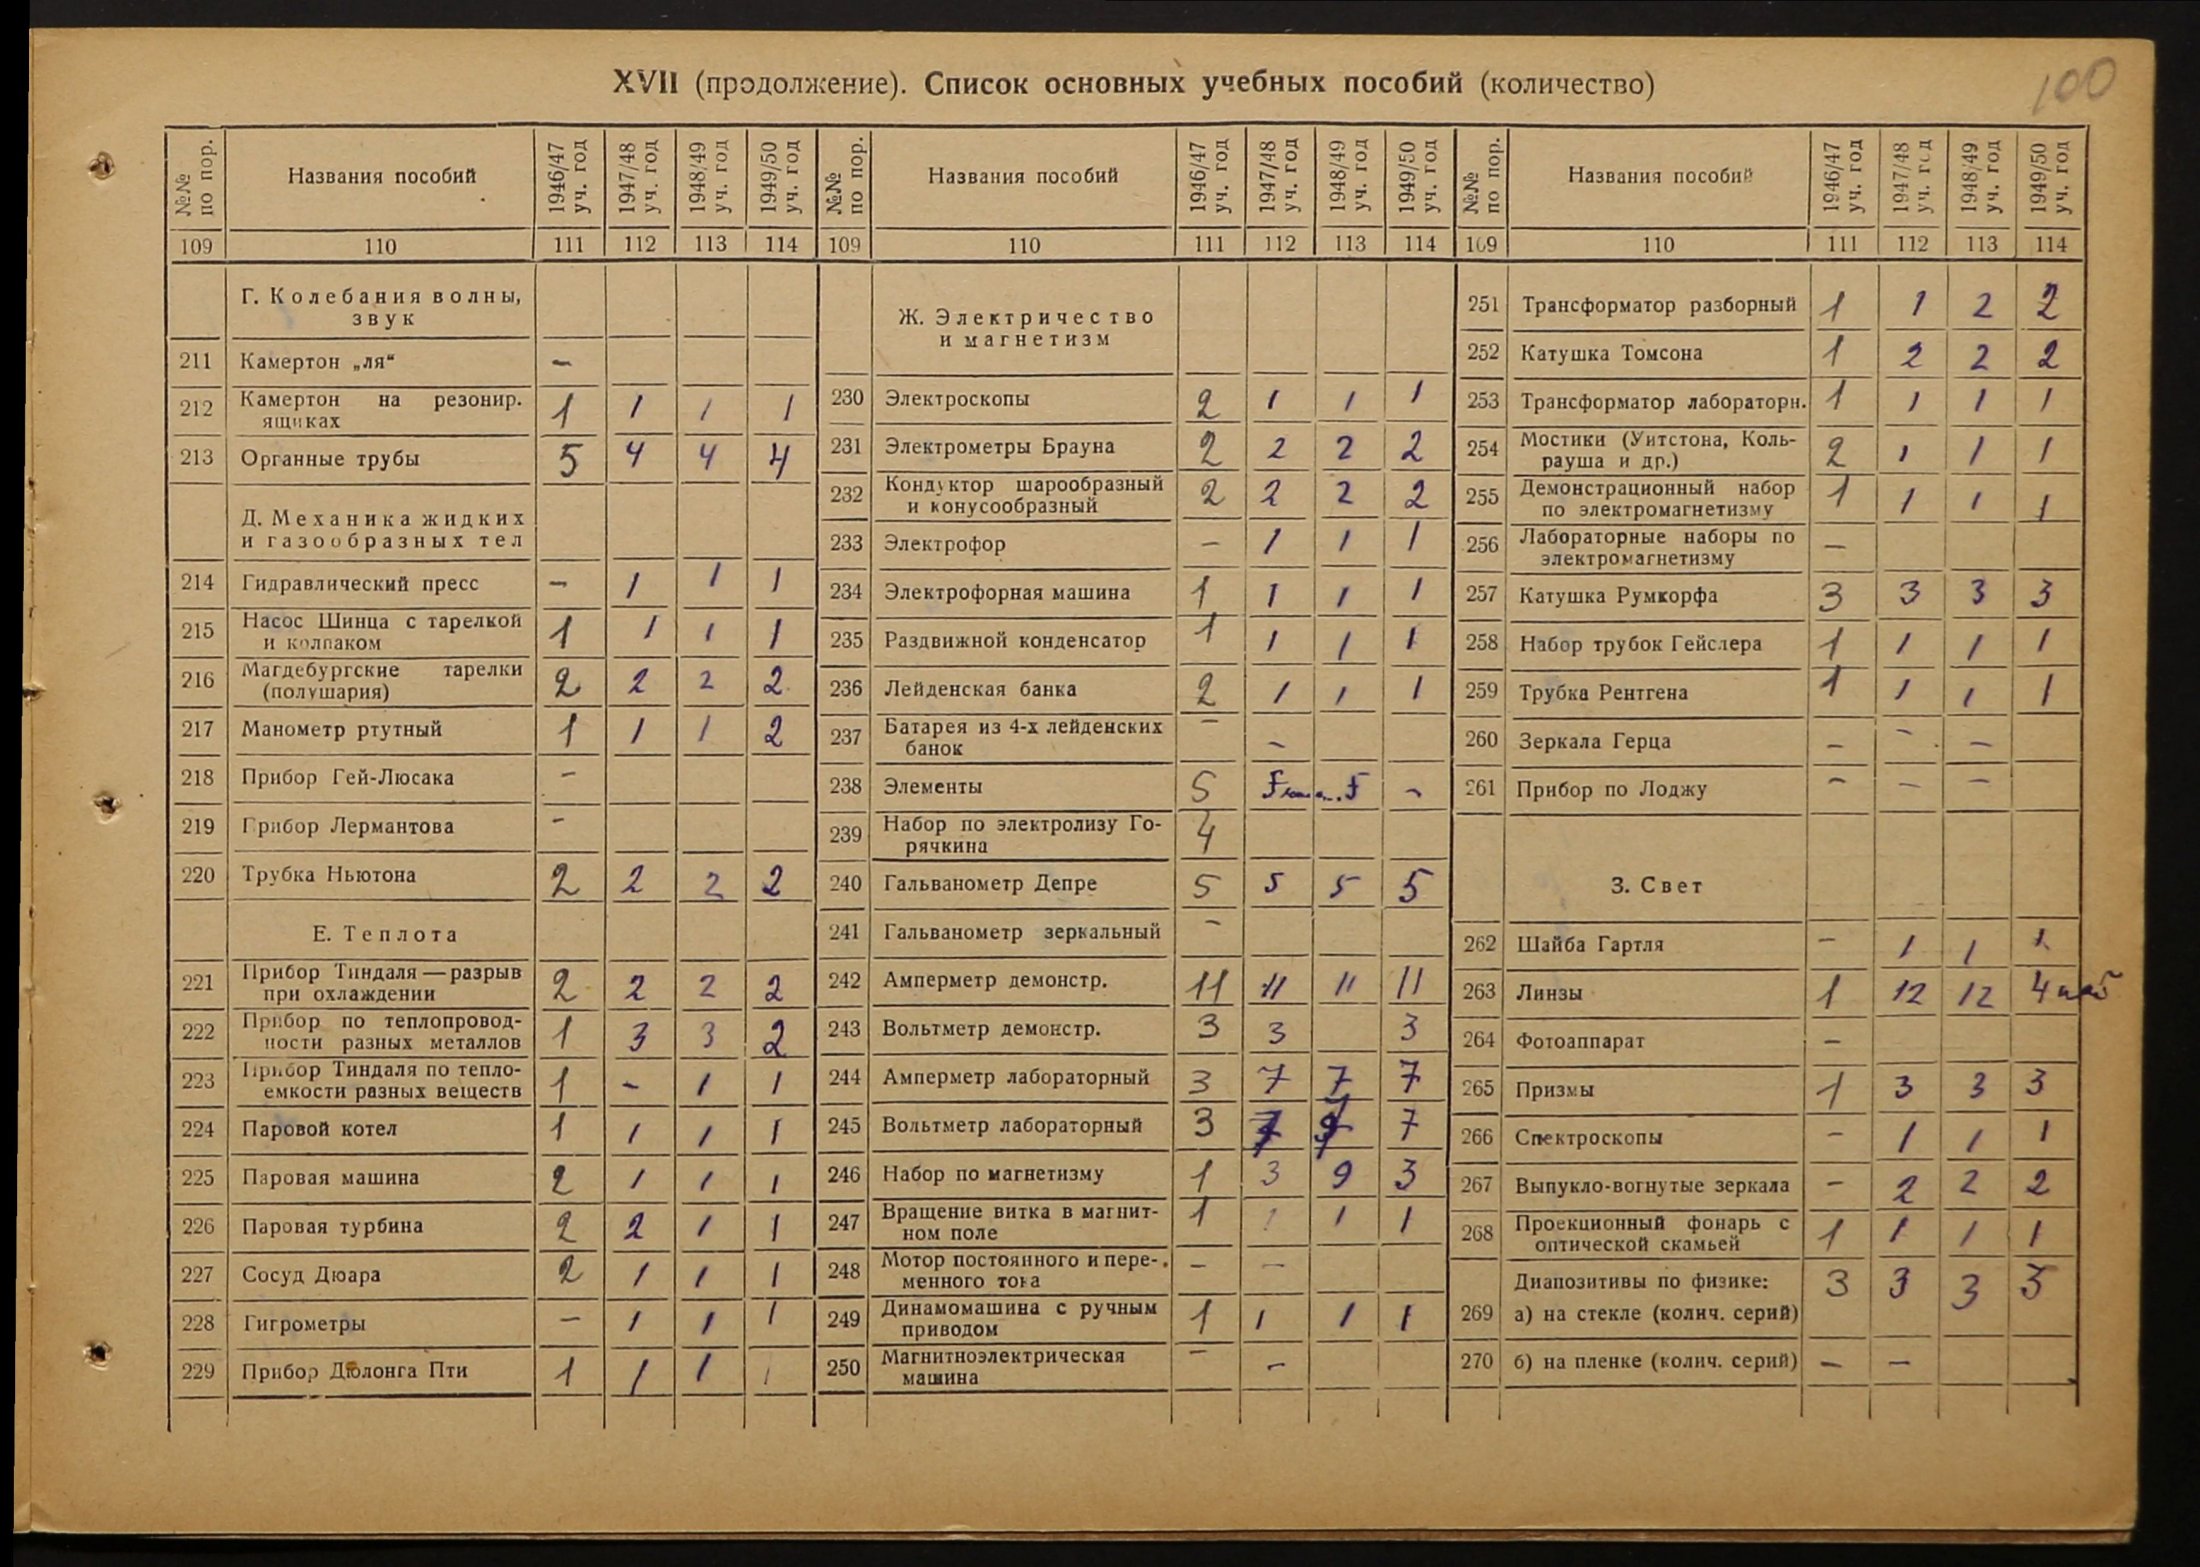 100
XVII (продолжение). Список основных учебных пособий (количество)
№№ по пор. Названия пособий 1946/47 уч. год 1947/48 уч. год 1948/49 уч. год 1949/50 уч. год
109 110 111 112 113 114
Г. Колебания волны,
звук
211 Камертон „ля“ –
212 Камертон на резонир.
ящиках 1 1 1 1
213 Органные трубы 5 4 4 4
Д. Механика жидких
и газообразных тел
214 Гидравлический пресс – 1 1 1
215 Насос Шинца с тарелкой
и колпаком 1 1 1 1
216 Магдебургские тарелки
(полушария) 2 2 2 2
217 Манометр ртутный 1 1 1 2
218 Прибор Гей-Люсака –
219 Прибор Лермантова –
220 Трубка Ньютона 2 2 2 2
Е. Теплота
221 Прибор Тиндаля — разрыв
при охлаждении 2 2 2 2
222 Прибор по теплопровод-
ности разных металлов 1 3 3 2
223 Прибор Тиндаля по тепло-
емкости разных веществ 1 – 1 1
224 Паровой котел 1 1 1 1
225 Паровая машина 2 1 1 1
226 Паровая турбина 2 2 1 1
227 Сосуд Дюара 2 1 1 1
228 Гигрометры – 1 1 1
229 Прибор Дюлонга Пти 1 1 1 1
№№ по пор. Названия пособий 1946/47 уч. год 1947/48 уч. год 1948/49 уч. год 1949/50 уч. год
109 110 111 112 113 114
Ж. Электричество
и магнетизм
230 Электроскопы 2 1 1 1
231 Электрометры Брауна 2 2 2 2
232 Кондуктор шарообразный
и конусообразный 2 2 2 2
233 Электрофор – 1 1 1
234 Электрофорная машина 1 1 1 1
235 Раздвижной конденсатор 1 1 1 1
236 Лейденская банка 2 1 1 1
237 Батарея из 4-х лейденских
банок – –
238 Элементы 5 –
239 Набор по электролизу Го-
рячкина 4
240 Гальванометр Депре 5 5 5 5
241 Гальванометр зеркальный –
242 Амперметр демонстр. 11 11 11 11
243 Вольтметр демонстр. 3 3 3
244 Амперметр лабораторный 3 7 7 7
245 Вольтметр лабораторный 3 7 7
246 Набор по магнетизму 1 3 9 3
247 Вращение витка в магнит-
ном поле 1 1 1 1
248 Мотор постоянного и пере-
менного тока – –
249 Динамомашина с ручным
приводом 1 1 1 1
250 Магнитноэлектрическая
машина – –
№№ по пор. Названия пособий 1946/47 уч. год 1947/48 уч. год 1948/49 уч. год 1949/50 уч. год
109 110 111 112 113 114
251 Трансформатор разборный 1 1 2 2
252 Катушка Томсона 1 2 2 2
253 Трансформатор лабораторн. 1 1 1 1
254 Мостики (Уитстона, Коль-
рауша и др.) 2 1 1 1
255 Демонстрационный набор
по электромагнетизму 1 1 1 1
256 Лабораторные наборы по
электромагнетизму –
257 Катушка Румкорфа 3 3 3 3
258 Набор трубок Гейслера 1 1 1 1
259 Трубка Рентгена 1 1 1 1
260 Зеркала Герца – – –
261 Прибор по Лоджу – – –
З. Свет
262 Шайба Гартля – 1 1 1
263 Линзы 1 12 12 4
264 Фотоаппарат –
265 Призмы 1 3 3 3
266 Спектроскопы – 1 1 1
267 Выпукло-вогнутые зеркала – 2 2 2
268 Проекционный фонарь с
оптической скамьей 1 1 1 1
Диапозитивы по физике: 3 3 3 3
269 а) на стекле (колич. серий)
270 б) на пленке (колич. серий) – –